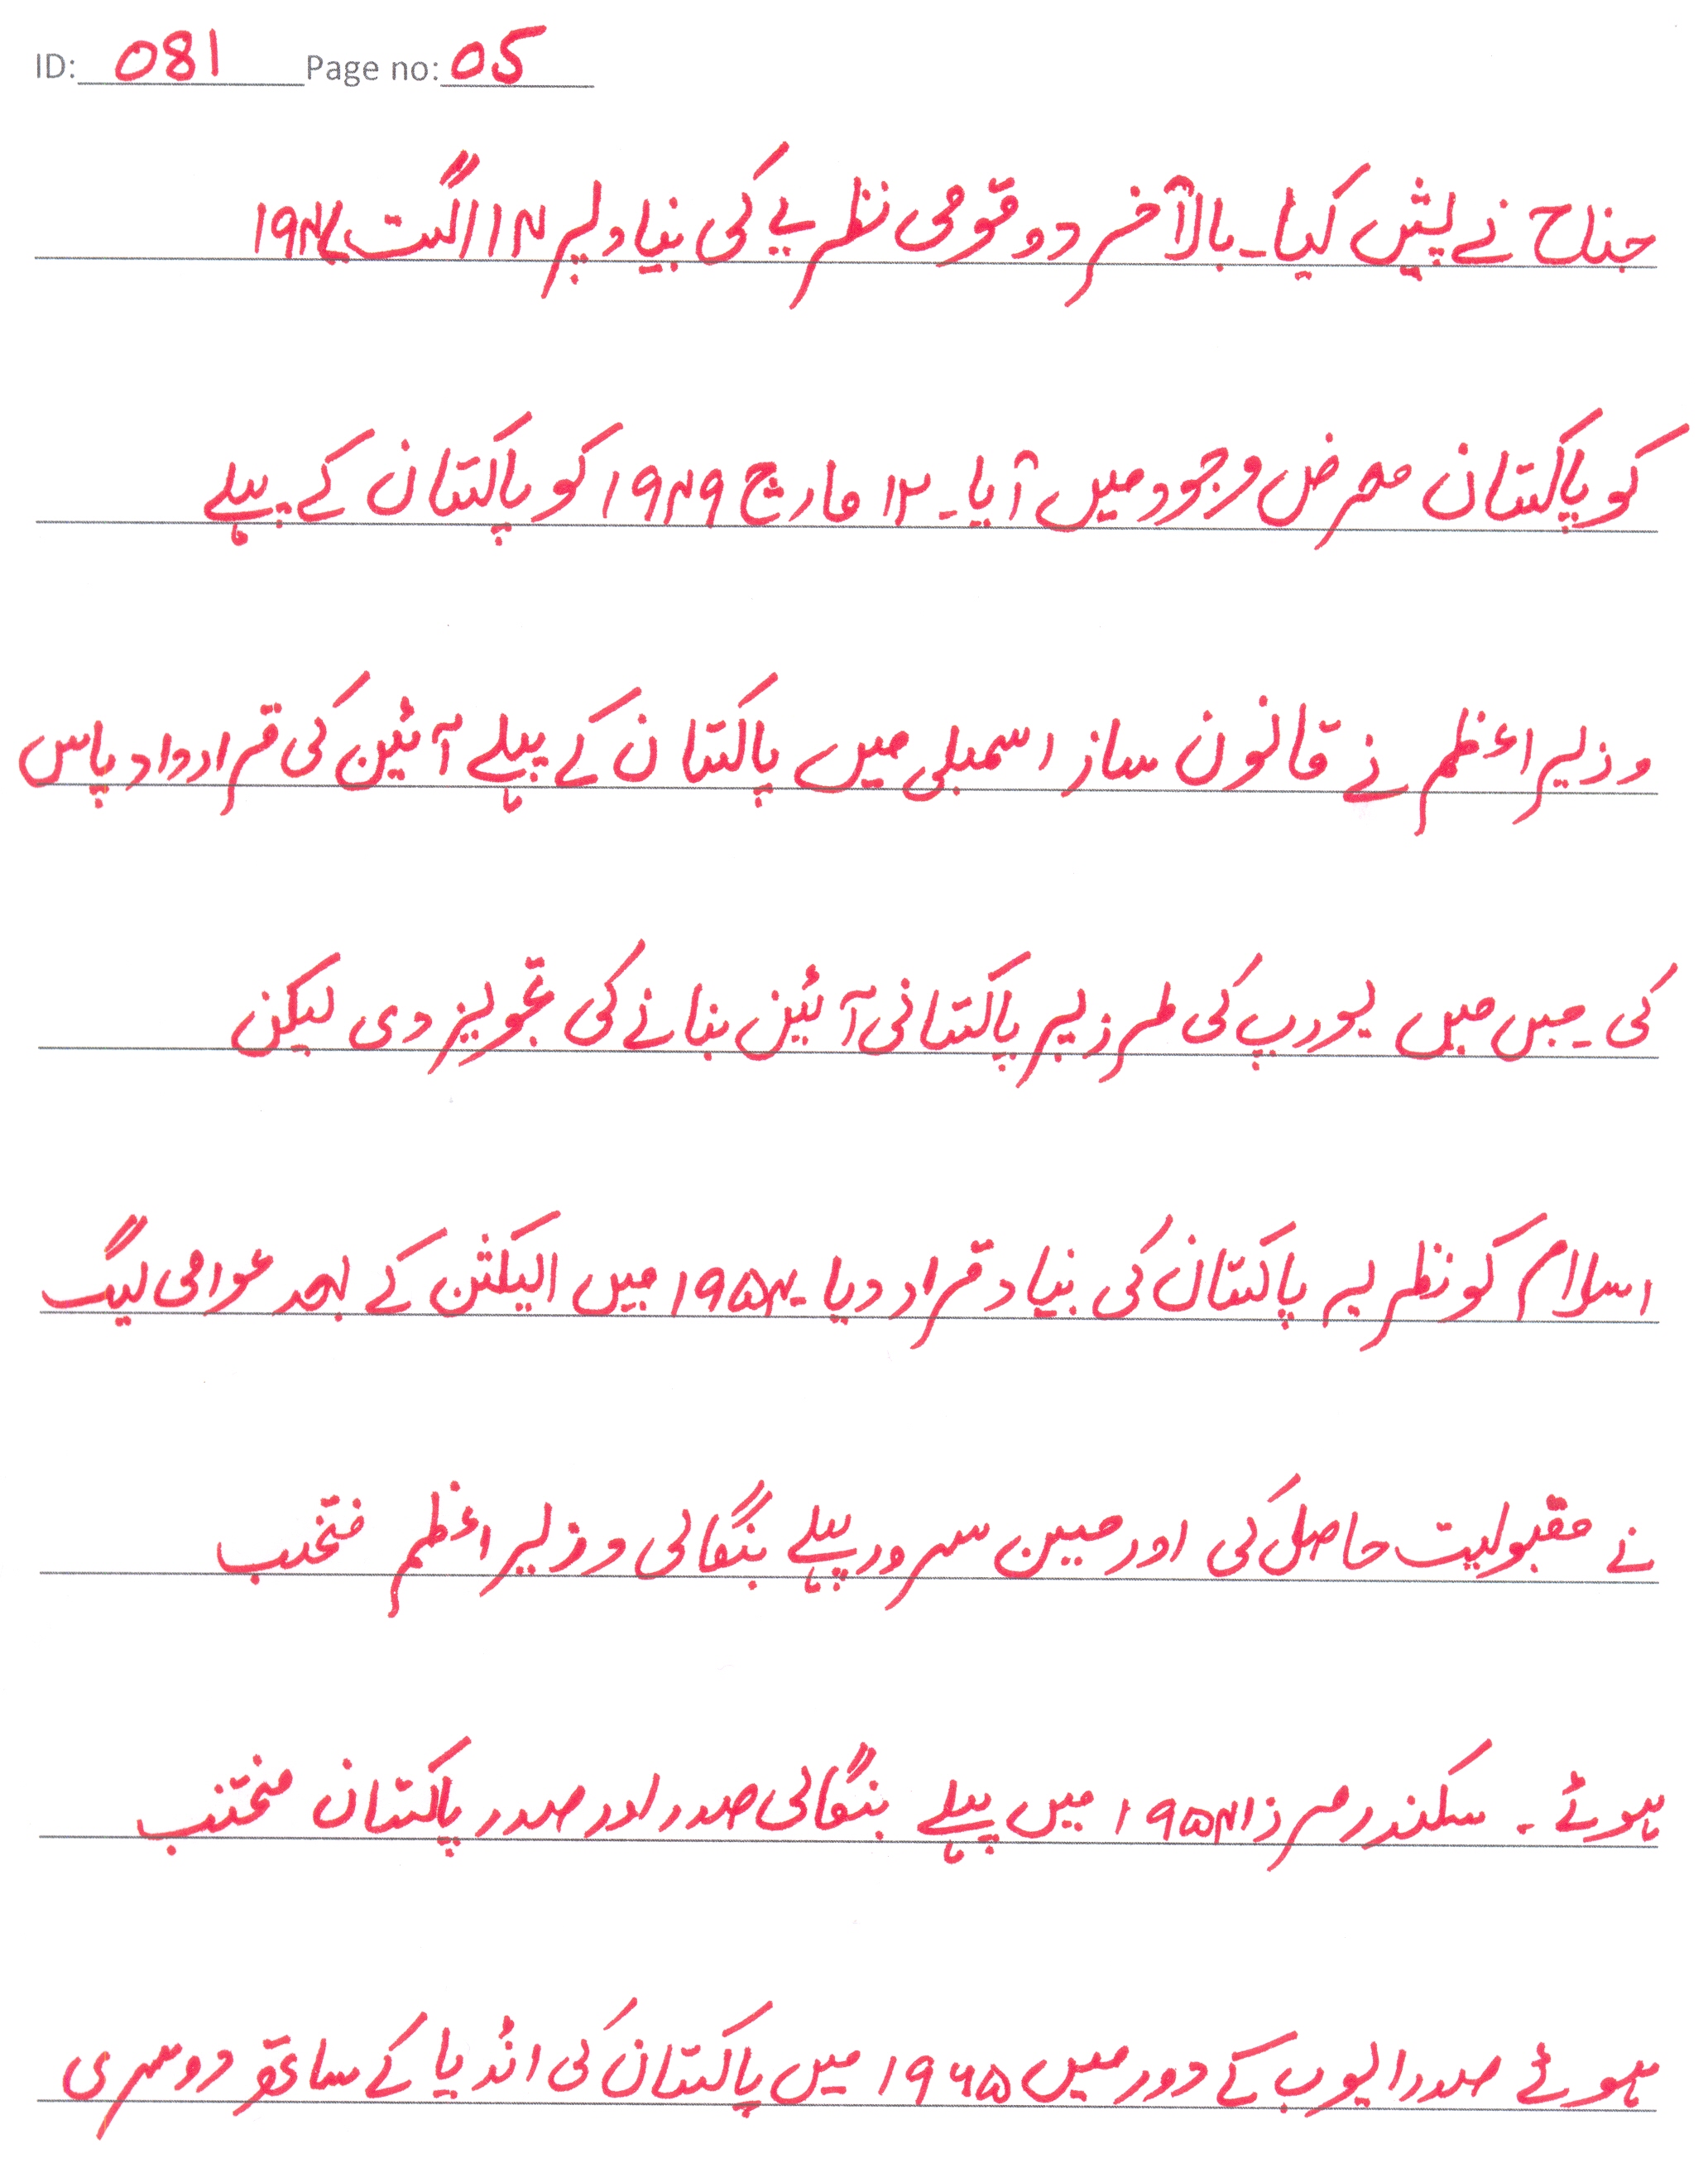 ID: 081 Page no: 05
جناح نے پیش کیا۔ بالآخر دو قومی نظریے کی بنیاد پر ۱۴ اگست ۱۹۴۷
کو پاکستان معرض وجود میں آیا۔ ۱۲ مارچ ۱۹۴۹ کو پاکستان کے پہلے
وزیراعظم نے قانون ساز اسمبلی میں پاکستان کے پہلے آئین کی قرارداد پاس
کی۔ جس میں یورپ کی طرز پر پاکستانی آئین بنانے کی تجویز دی لیکن
اسلام کو نظریہ پاکستان کی بنیاد قرار دیا۔ ۱۹۵۴ میں الیکشن کے بعد عوامی لیگ
نے مقبولیت حاصل کی اور حسین سہرور پہلے بنگالی وزیراعظم منتخب
ہوئے۔ سکندر مرزا ۱۹۵۴ میں پہلے بنگالی صدر اور صدر پاکستان منتخب
ہوئے صدر ایوب کے دور میں ۱۹۶۵ میں پاکستان کی انڈیا کے ساتھ دوسری